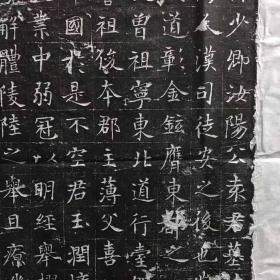 少卿汝陽公袁君墓
漢司徒安之後也
道彰金鉉膺東郡之
曾祖寧東北道行臺
祖後本郡主薄父喜
國於是不空君玉潤
業中弱冠以明經舉擢
解體陵陸之舉且療